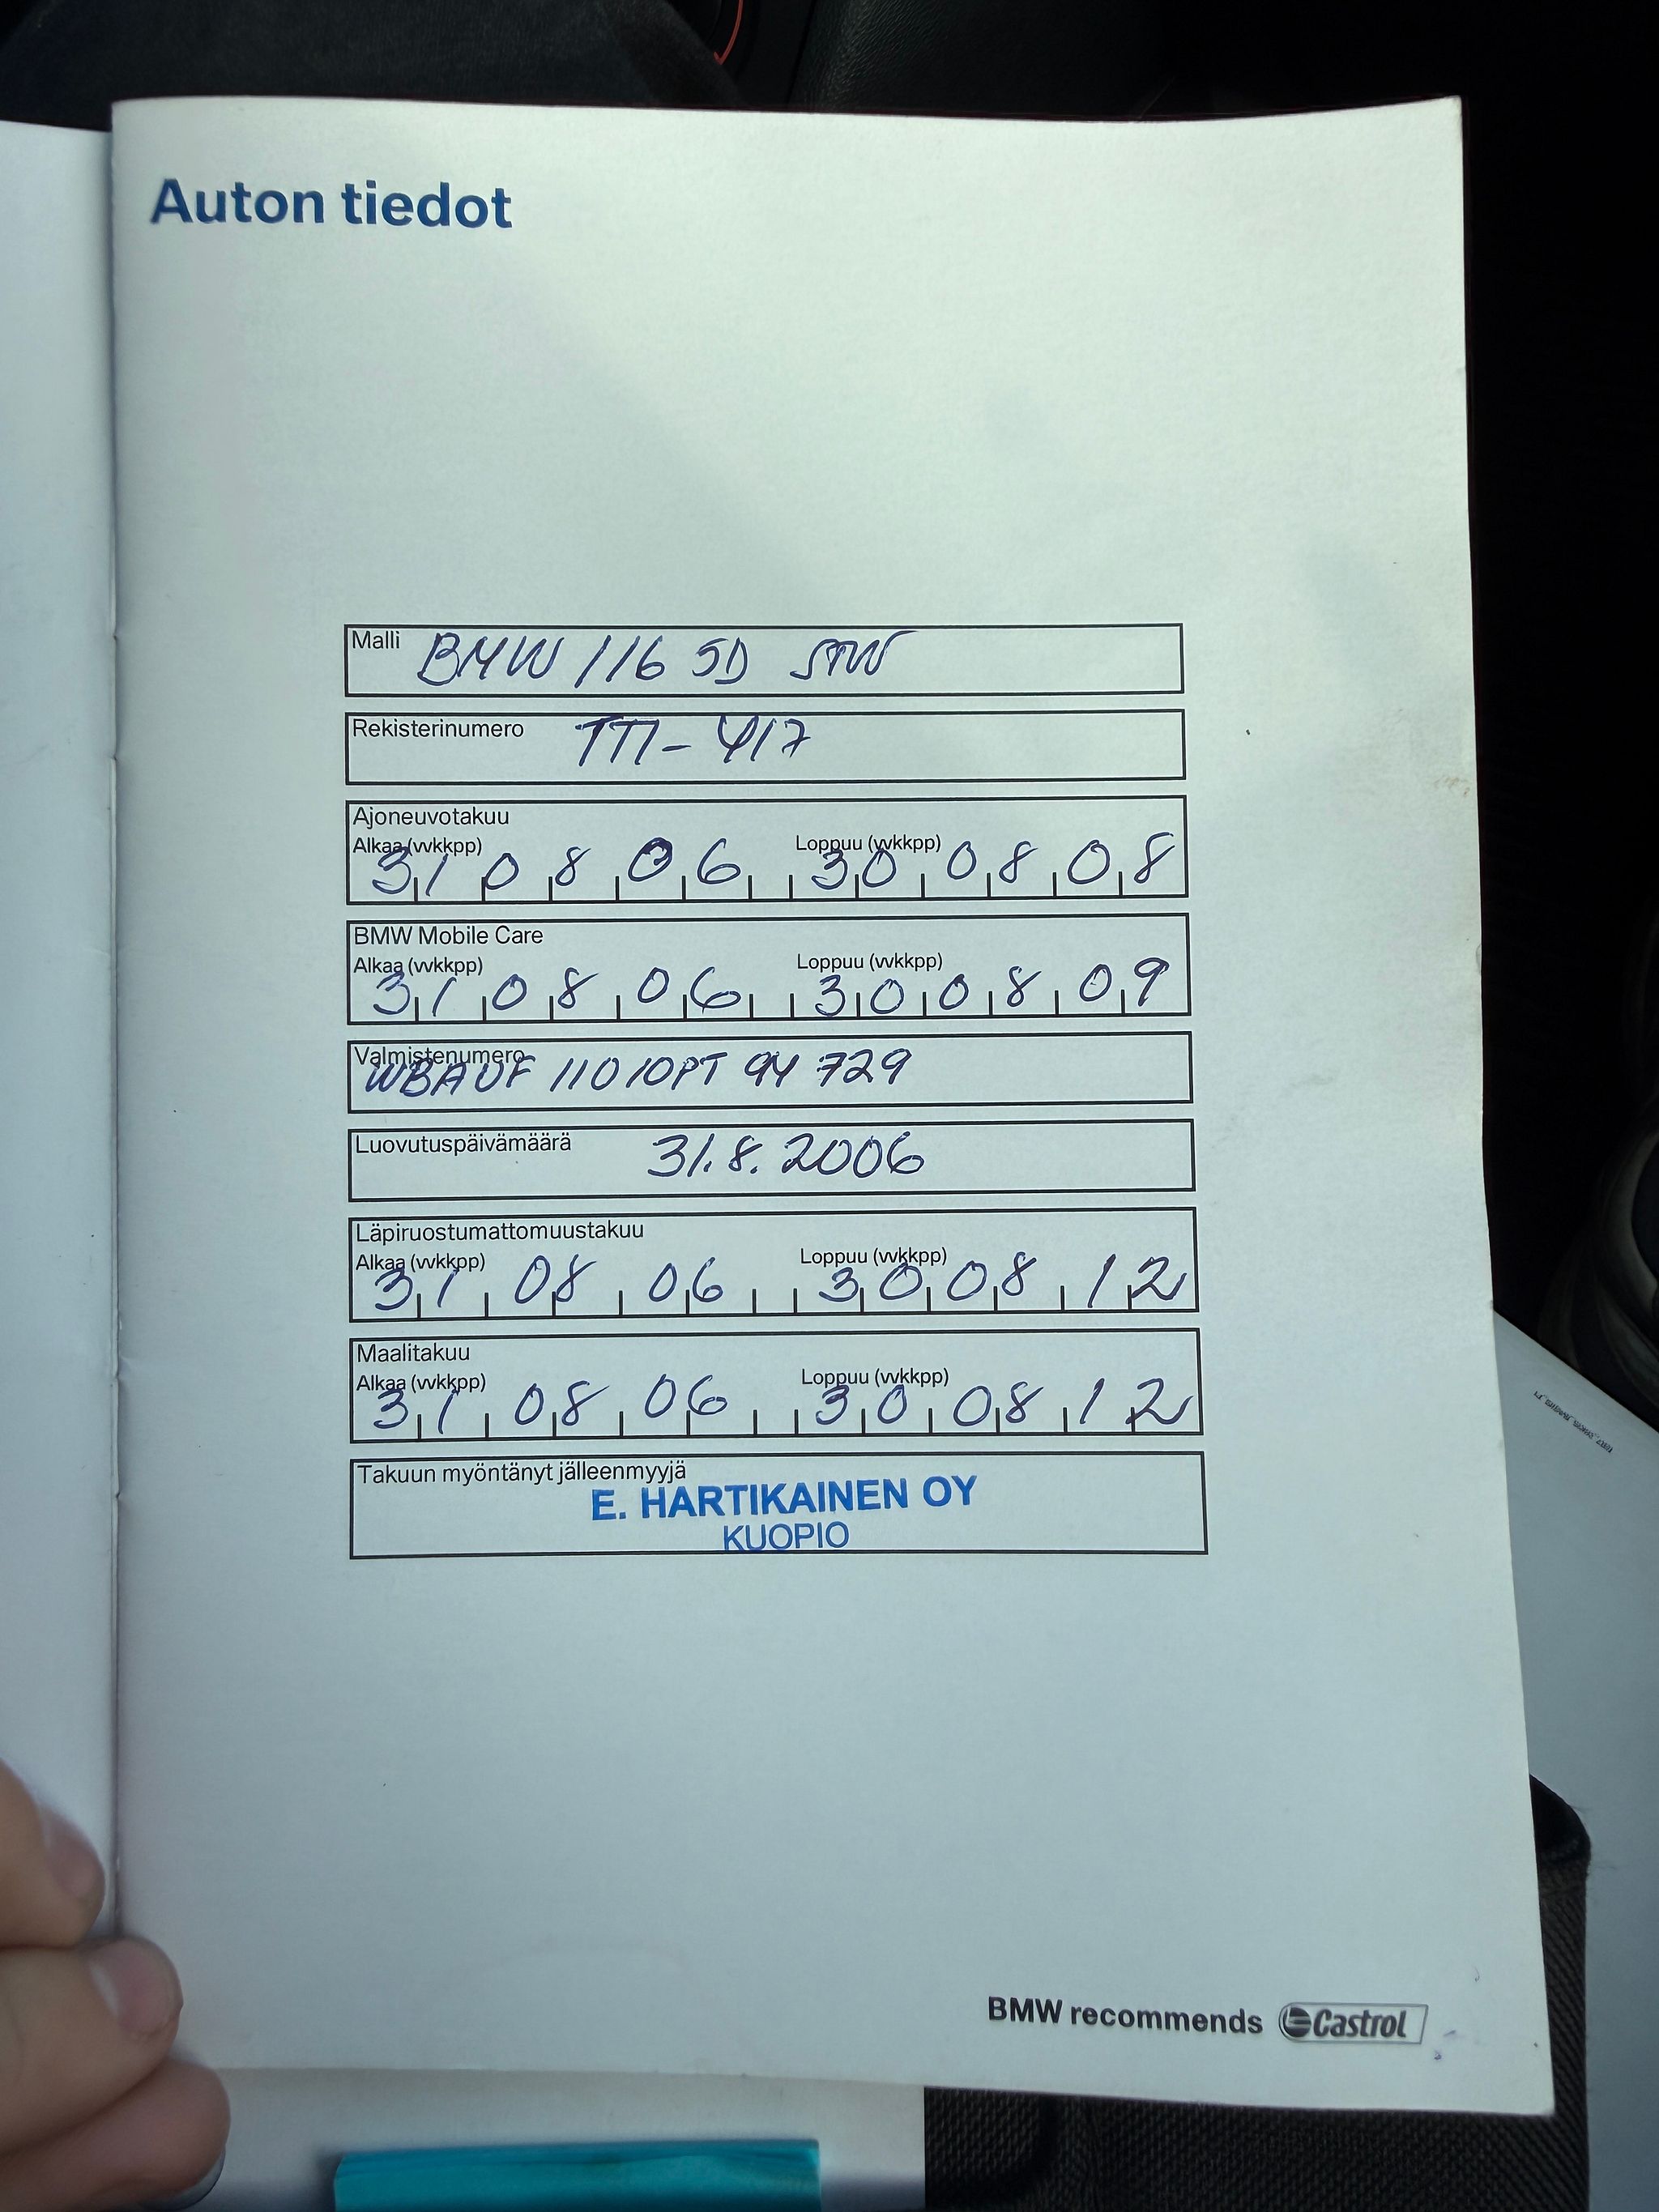 Auton tiedot
Malli BMW 116 5D STW
Rekisterinumero TTI-417
Ajoneuvotakuu
Alkaa (vvkkpp) 31 08 06 Loppuu (vvkkpp) 30 08 08
BMW Mobile Care
Alkaa (vvkkpp) 31 08 06 Loppuu (vvkkpp) 30 08 09
Valmistenumero
WBAUF 11010PT 94 729
Luovutuspäivämäärä 31.8.2006
Läpiruostumattomuustakuu
Alkaa (vvkkpp) 31 08 06 Loppuu (vvkkpp) 30 08 12
Maalitakuu
Alkaa (vvkkpp) 31 08 06 Loppuu (vvkkpp) 30 08 12
Takuun myöntänyt jälleenmyyjä
E. HARTIKAINEN OY
KUOPIO
BMW recommends Castrol